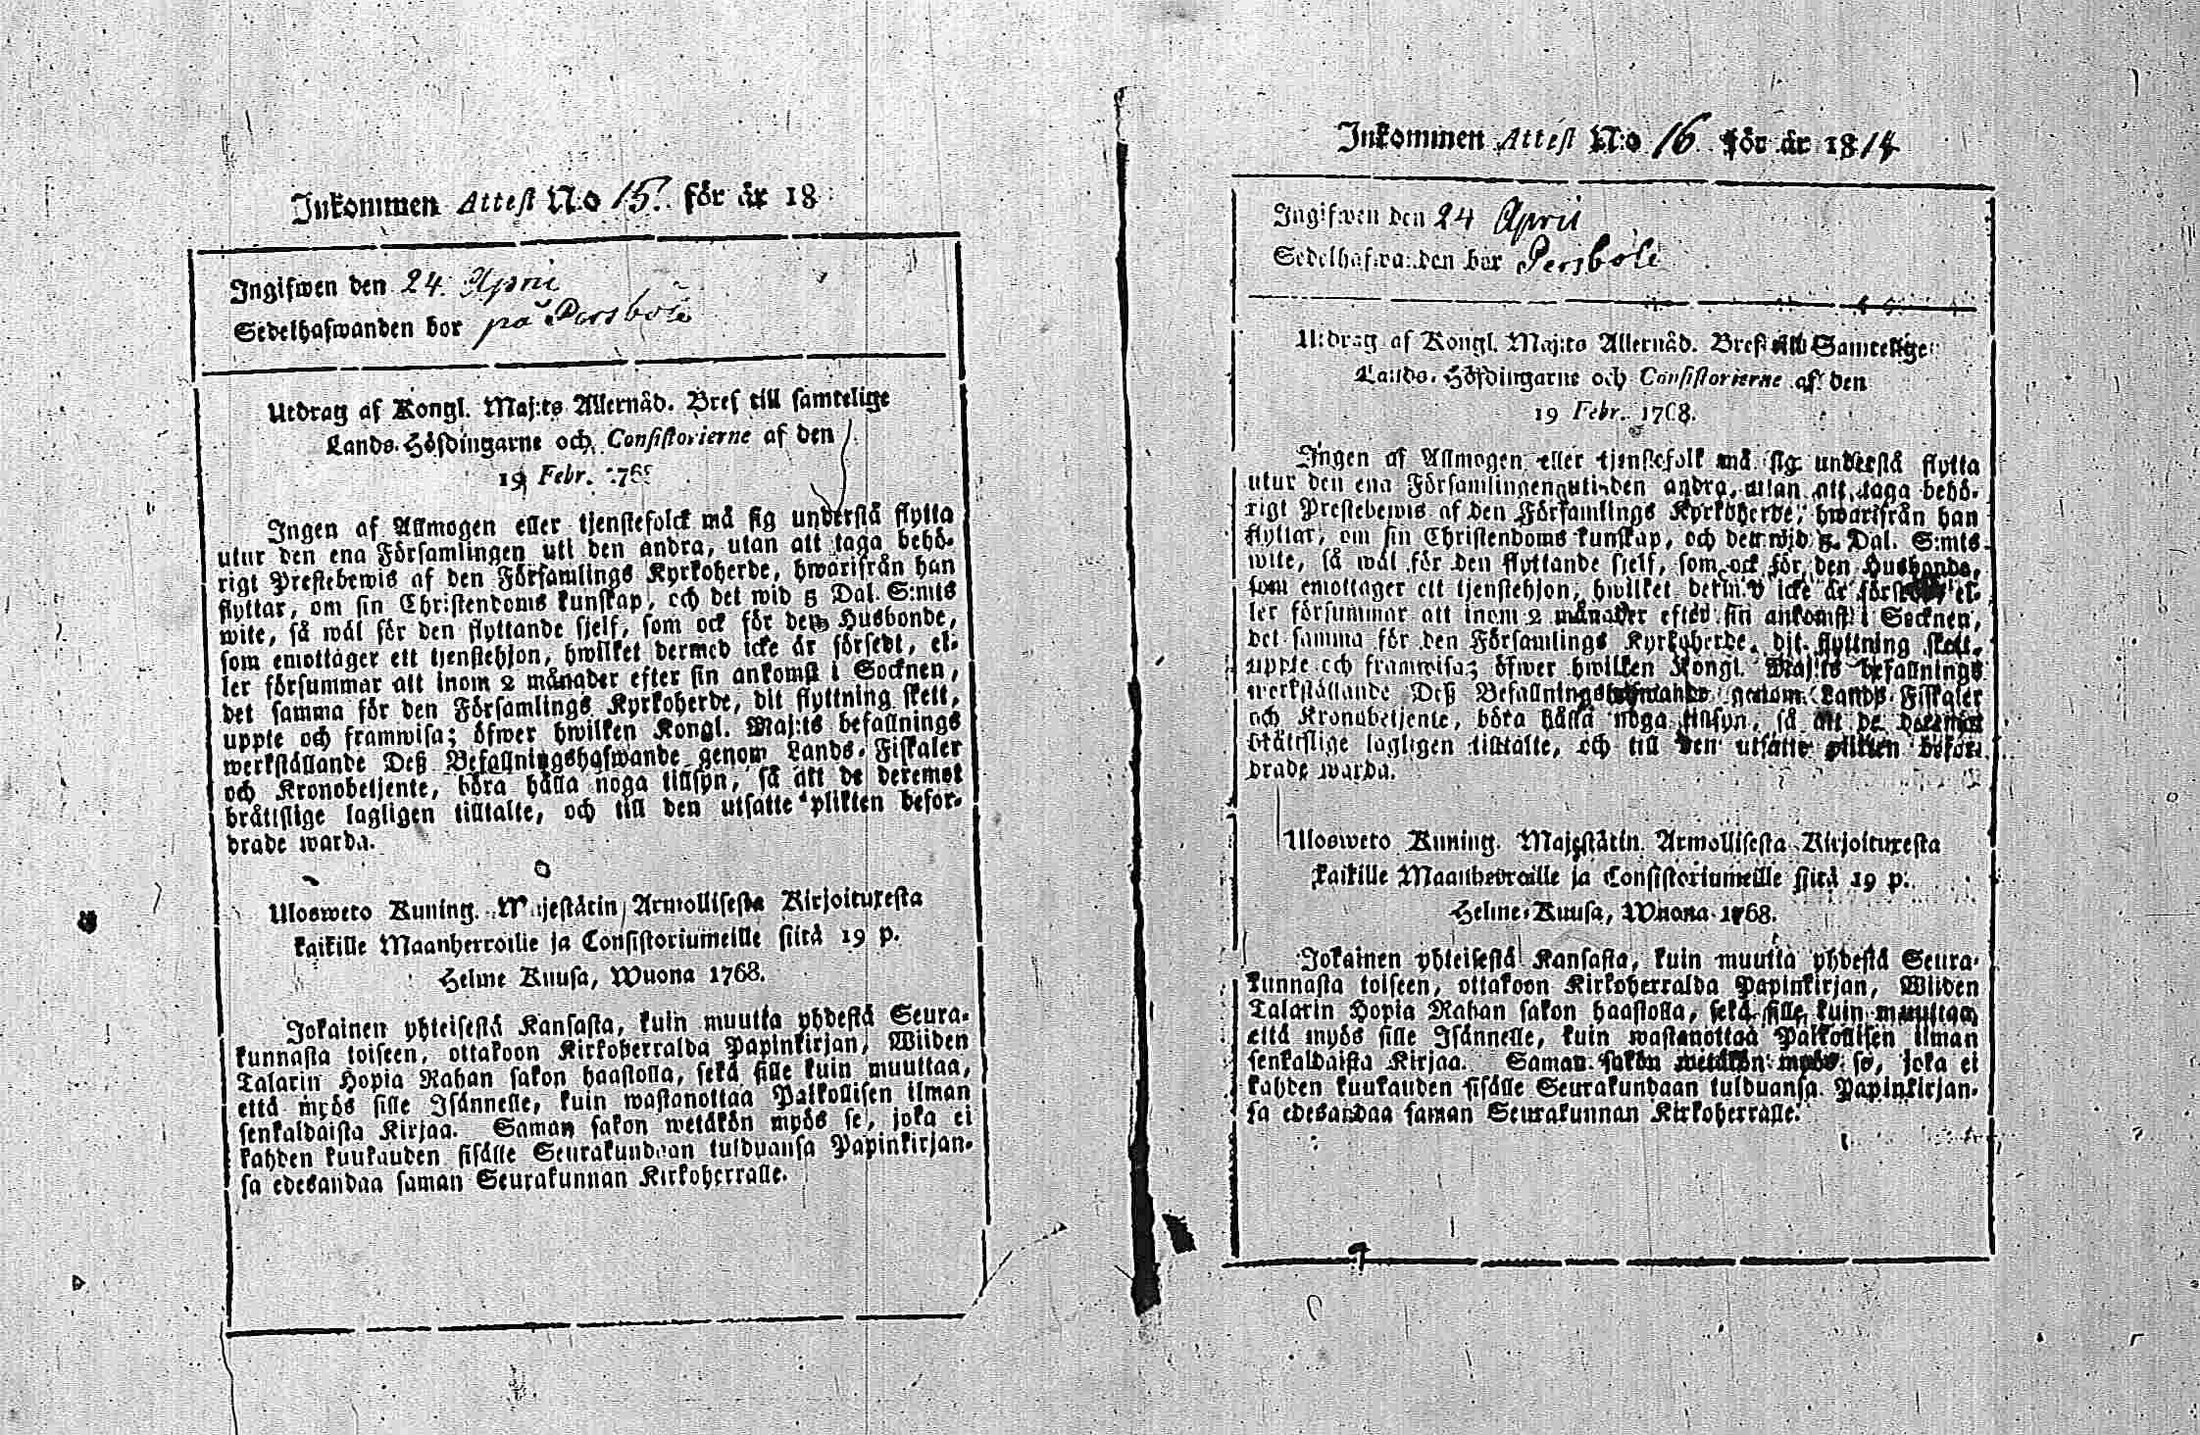 Inkommen Attest N:o 15. för år 18
Ingifwen den 24. April
Sedelhafwanden bor på Persböle
Utdrag af Kongl. Maj:ts Allernåd. Bref till samtelige
Lands-Höfdingarne och Consistorierne af den
19 Febr. 1768
Ingen af Allmogen eller tjenstefolck må sig understå flytta
utur den ena Församlingen uti den andra, utan att taga behö-
rigt Prestebewis af den Församlings Kyrkoherde, hwarifrån han
flyttar, om sin Christendoms kunskap, och det wid 5 Dal. S:mts
wite, så wäl för den flyttande sjelf, som ock för den Husbonde,
som emottager ett tjenstehjon, hwilket dermed icke är försedt, el-
ler försummar att inom 2 månader efter sin ankomst i Socknen,
det samma för den Församlings Kyrkoherde, dit flyttning skett,
uppte och framwisa; öfwer hwilken Kongl. Maj:ts befallnings
werkställande Deß Befallningshafwande genom Lands-Fiskaler
och Kronobetjente, böra hålla noga tillsyn, så att de deremot
bråttslige lagligen tilltalte, och till den utsatte plikten befor-
drade warda.
Ulosweto Kuning. Majestätin Armollisesta Kirjoituxesta
kaikille Maanherroille ja Consistoriumeille siitä 19 p.
Helme Kuusa, Wuona 1768.
Jokainen yhteisestä Kansasta, kuin muutta yhdestä Seura-
kunnasta toiseen, ottakoon Kirkoherralda Papinkirjan, Wiiden
Talarin Hopia Rahan sakon haastolla, sekä sille kuin muuttaa,
että myös sille Isännelle, kuin wastanottaa Palkollisen ilman
senkaldaista Kirjaa. Saman sakon wetäkön myös se, joka ei
kahden kuukauden sisälle Seurakundaan tulduansa Papinkirjan-
sa edesandaa saman Seurakunnan Kirkoherralle.
Inkommen Attest N:o 16. för år 1814
Ingifwen den 24 April
Sedelhafwanden bor Persböle
Utdrag af Kongl. Maj:ts Allernåd. Bref till Samtelige
Lands-Höfdingarne och Consistorierne af den
19 Febr. 1768.
Ingen af Allmogen eller tjenstefolk må sig understå flytta
utur den ena Församlingen uti den andra, utan att taga behö-
rigt Prestebewis af den Församlings Kyrkoherde, hwarifrån han
flyttar, om sin Christendoms kunskap, och det wid 5 Dal. S:mts
wite, så wäl för den flyttande sjelf, som ock för den Husbonde,
som emottager ett tjenstehjon, hwilket dermed icke är försedt, el-
ler försummar att inom 2 månader efter sin ankomst i Socknen,
det samma för den Församlings Kyrkoherde, dit flyttning skett,
uppte och framwisa; öfwer hwilken Kongl. Maj:ts befallnings
werkställande Deß Befallningshafwande genom Lands-Fiskaler
och Kronobetjente, böra hålla noga tillsyn, så att de deremot
bråttslige lagligen tilltalte, och till den utsatte plikten befor-
drade warda.
Ulosweto Kuning. Majestätin Armollisesta Kirjoituxesta
kaikille Maanherroille ja Consistoriumeille siitä 19 p.
Helme-Kuusa, Wuona 1768.
Jokainen yhteisestä Kansasta, kuin muutta yhdestä Seura-
kunnasta toiseen, ottakoon Kirkoherralda Papinkirjan, Wiiden
Talarin Hopia Rahan sakon haastolla, sekä sille kuin muuttaa,
että myös sille Isännelle, kuin wastanottaa Palkollisen ilman
senkaldaista Kirjaa. Saman sakon wetäkön myös se, joka ei
kahden kuukauden sisälle Seurakundaan tulduansa Papinkirjan-
sa edesandaa saman Seurakunnan Kirkoherralle.